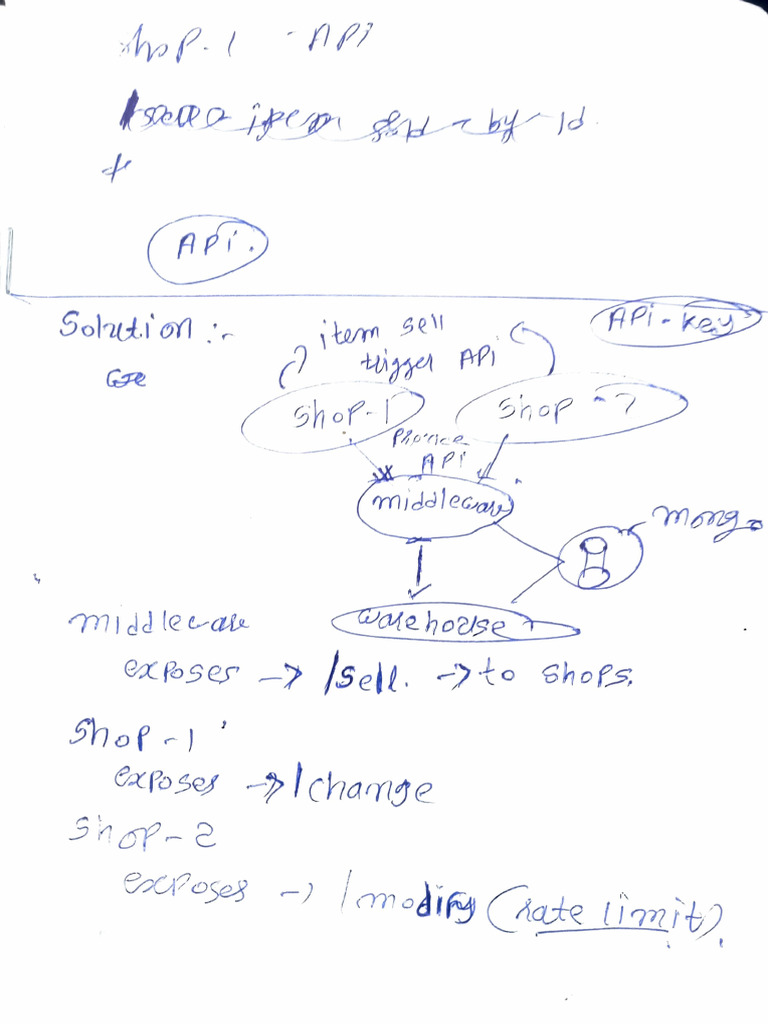 shop-1 - API
item by-id
API.
Solution :-
API-key
item sell
trigger API
shop-1
shop-2
API
middleware
mongo
warehouse
middleware
exposes → /sell. → to shops.
shop-1
exposes → /change
shop-2
exposes → /modify (rate limit).